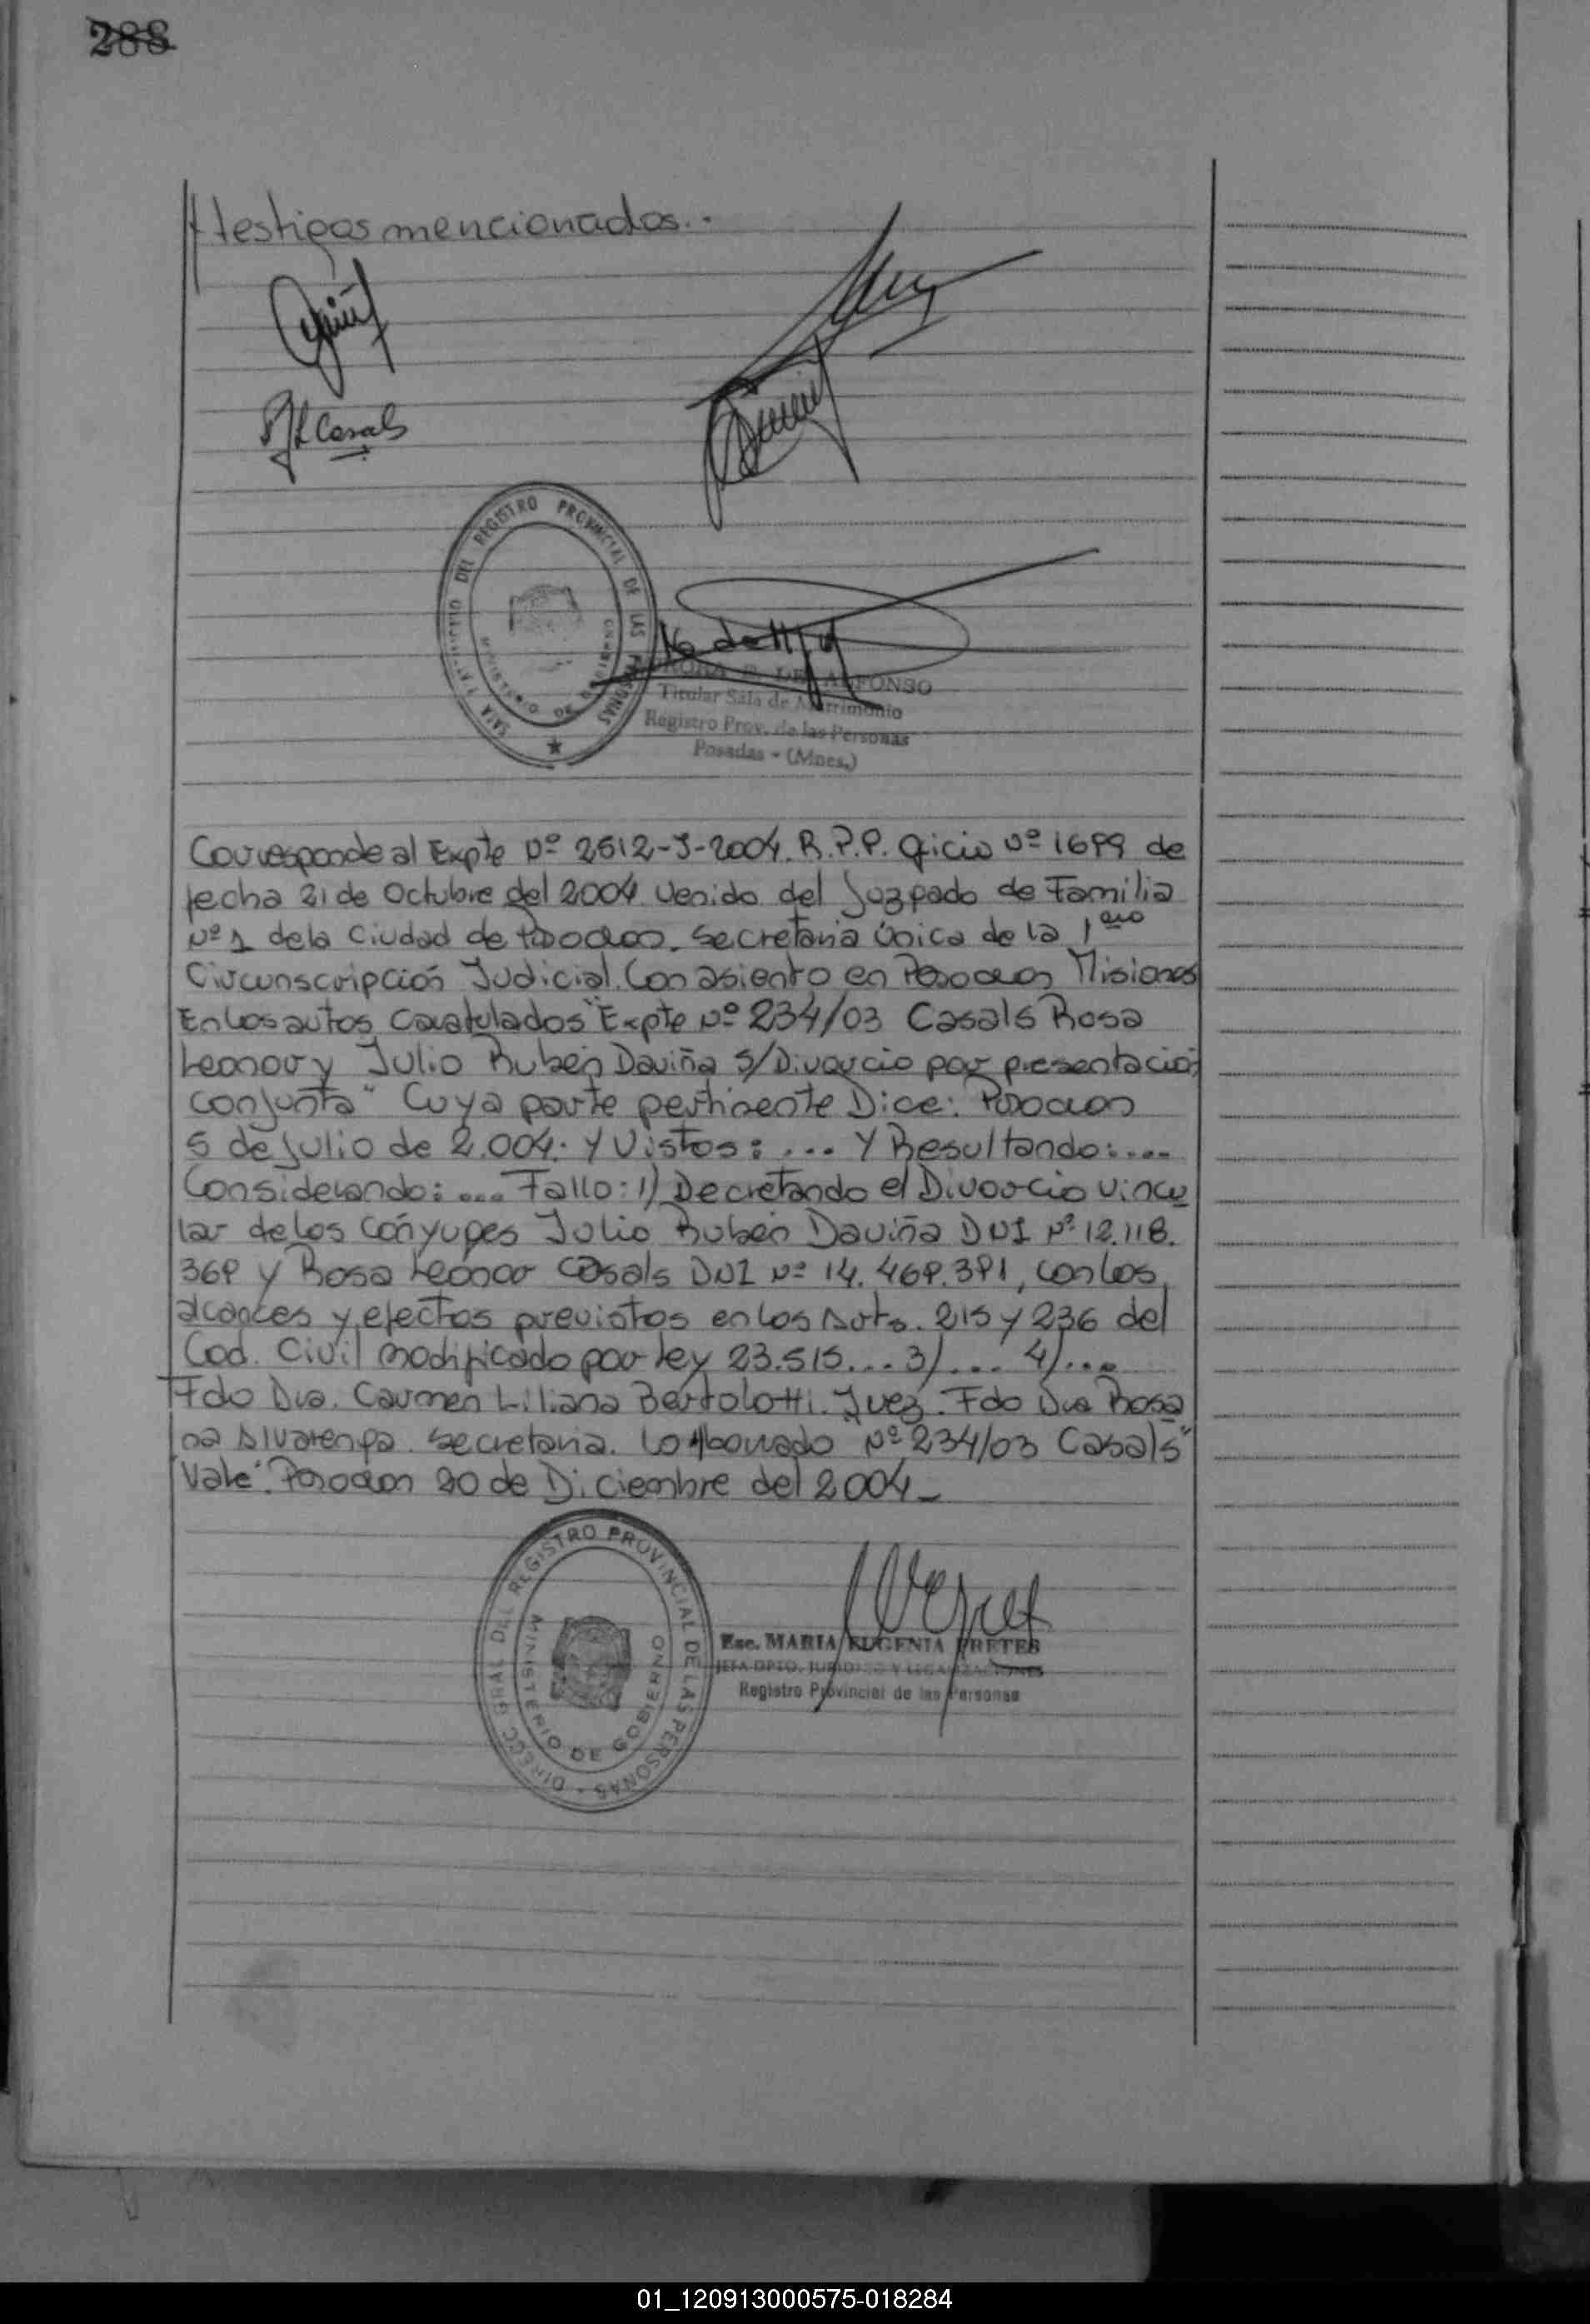 288
testigos mencionados..
R L Casals
REGISTRO PROVINCIAL DE LAS PERSONAS
DE ALFONSO
Titular Sala de Matrimonio
Registro Prov. de las Personas
Posadas - (Mnes.)
Corresponde al Expte Nº 2612-J-2004. R.P.P. Oficio Nº 1699 de
fecha 21 de Octubre del 2004 Venido del Juzgado de Familia
Nº 1 de la Ciudad de Posadas. Secretaria Única de la 1era
Circunscripción Judicial. Con asiento en Posadas Misiones
En los autos Caratulados "Expte Nº 234/03 Casals Rosa
Leonor y Julio Rubén Daviña S/Divorcio por presentación
conjunta" Cuya parte pertinente Dice: Posadas
5 de Julio de 2.004. Y Vistos: ... Y Resultando: ...
Considerando: ... Fallo: 1) Decretando el Divorcio vincu
lar de los cónyuges Julio Rubén Daviña DNI Nº 12.118.
369 y Rosa Leonor Casals DNI Nº 14.469.391, con los
alcances y efectos previstos en los Arts. 215 y 236 del
Cod. Civil modificado por Ley 23.515 ... 3) ... 4) ...
Fdo Dra. Carmen Liliana Bertolotti. Juez. Fdo Dra Rosa
na Alvarenga. Secretaria. Lo borrado "Nº 234/03 Casals"
"Vale". Posadas 20 de Diciembre del 2004_
DIRECC. GRAL DEL REGISTRO PROVINCIAL DE LAS PERSONAS
MINISTERIO DE GOBIERNO
Esc. MARIA EUGENIA PRETES
JEFA DPTO. JURIDICO Y LEGALIZACIONES
Registro Provincial de las Personas
01_120913000575-018284